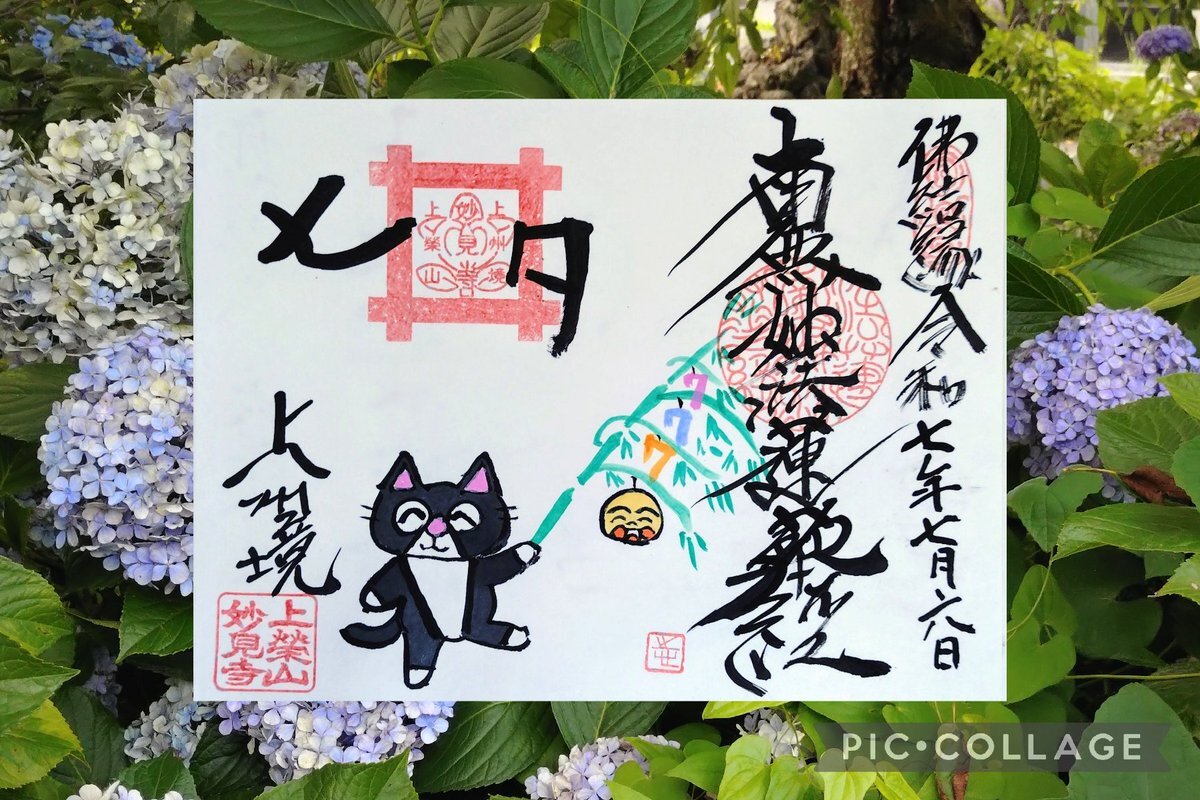 佛結縁 令和七年七月六日
南無妙法蓮華経
七夕
上州境
妙見寺
上榮山
7
7
7
上州境
上榮山
妙見寺
PIC•COLLAGE